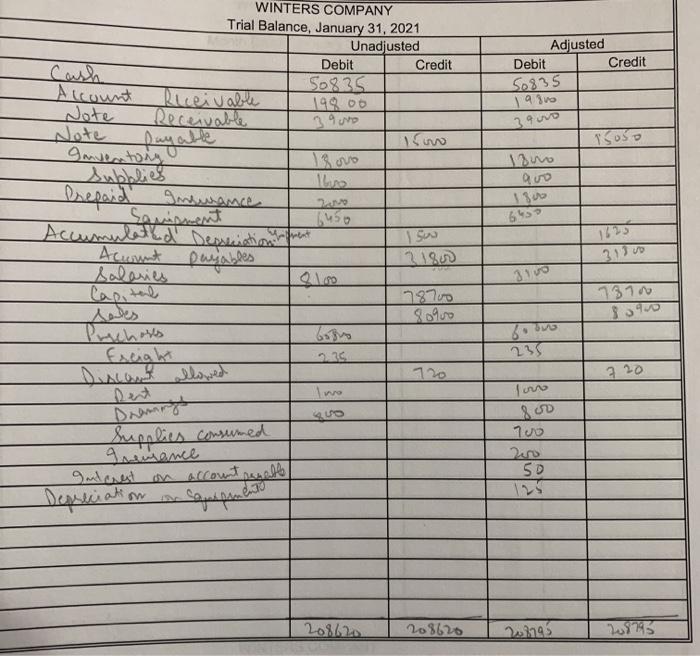 WINTERS COMPANY
Trial Balance, January 31, 2021
Unadjusted Adjusted
Debit Credit Debit Credit
Cash 50835 50835
Account Receivable 198 00 19800
Note Receivable 39000 39000
Note Payable 15000 15050
Inventory 18000 18000
Supplies 1600 900
Prepaid Insurance 2000 1800
Equipment 6450 6450
Accumulated Depreciation Equipment 1500 1625
Account Payables 31800 31800
Salaries 8100 8100
Capital 78700 78700
Sales 80900 80900
Purchases 60800 60800
Freight 235 235
Discount allowed 720 720
Rent 1000 1000
Drawings 800 800
Supplies consumed 700
Insurance 200
Interest on account payable 50
Depreciation on Equipment 125
208620 208620 208795 208795